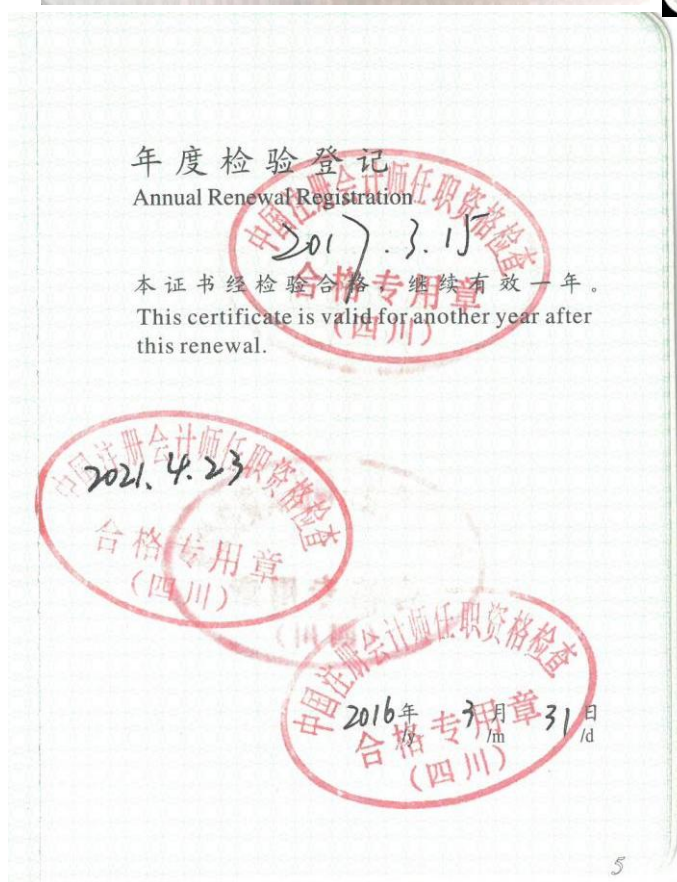 年度检验登记
Annual Renewal Registration
中国注册会计师任职资格检查
2017.3.15
合格专用章
(四川)
本证书经检验合格,继续有效一年。
This certificate is valid for another year after
this renewal.
中国注册会计师任职资格检查
2021.4.23
合格专用章
(四川)
中国注册会计师任职资格检查
2016年 3月 31日
/y /m /d
合格专用章
(四川)
5